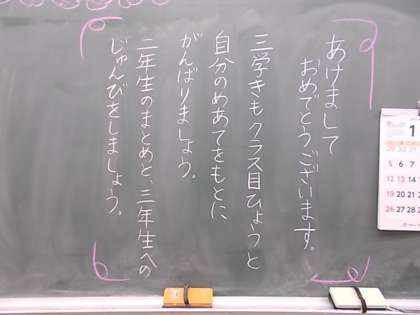 あけまして
おめでとうございます。
三学きもクラス目ひょうと
自分のめあてをもとに
がんばりましょう。
二年生のまとめと、三年生への
じゅんびをしましょう。
1
29 30 31
5 6 7
12 13 14
19 20 21
26 27 28